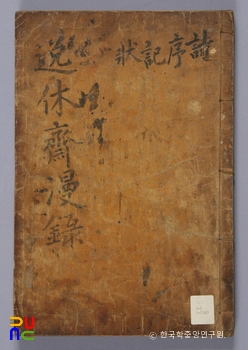 詩序記狀
逸休齋漫錄
© 한국학중앙연구원